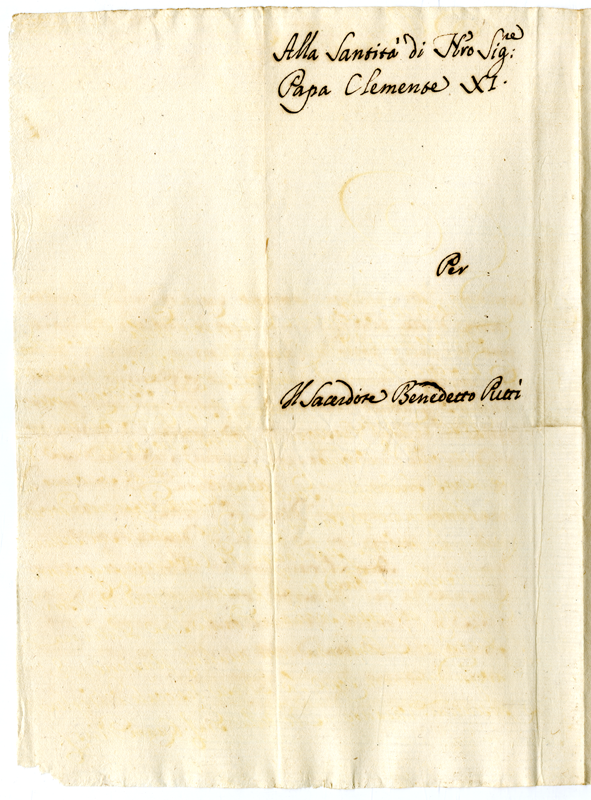 Alla Santità di Nro Sigre:
Papa Clemente XI.
Per
Il Sacerdote Benedetto Pitti